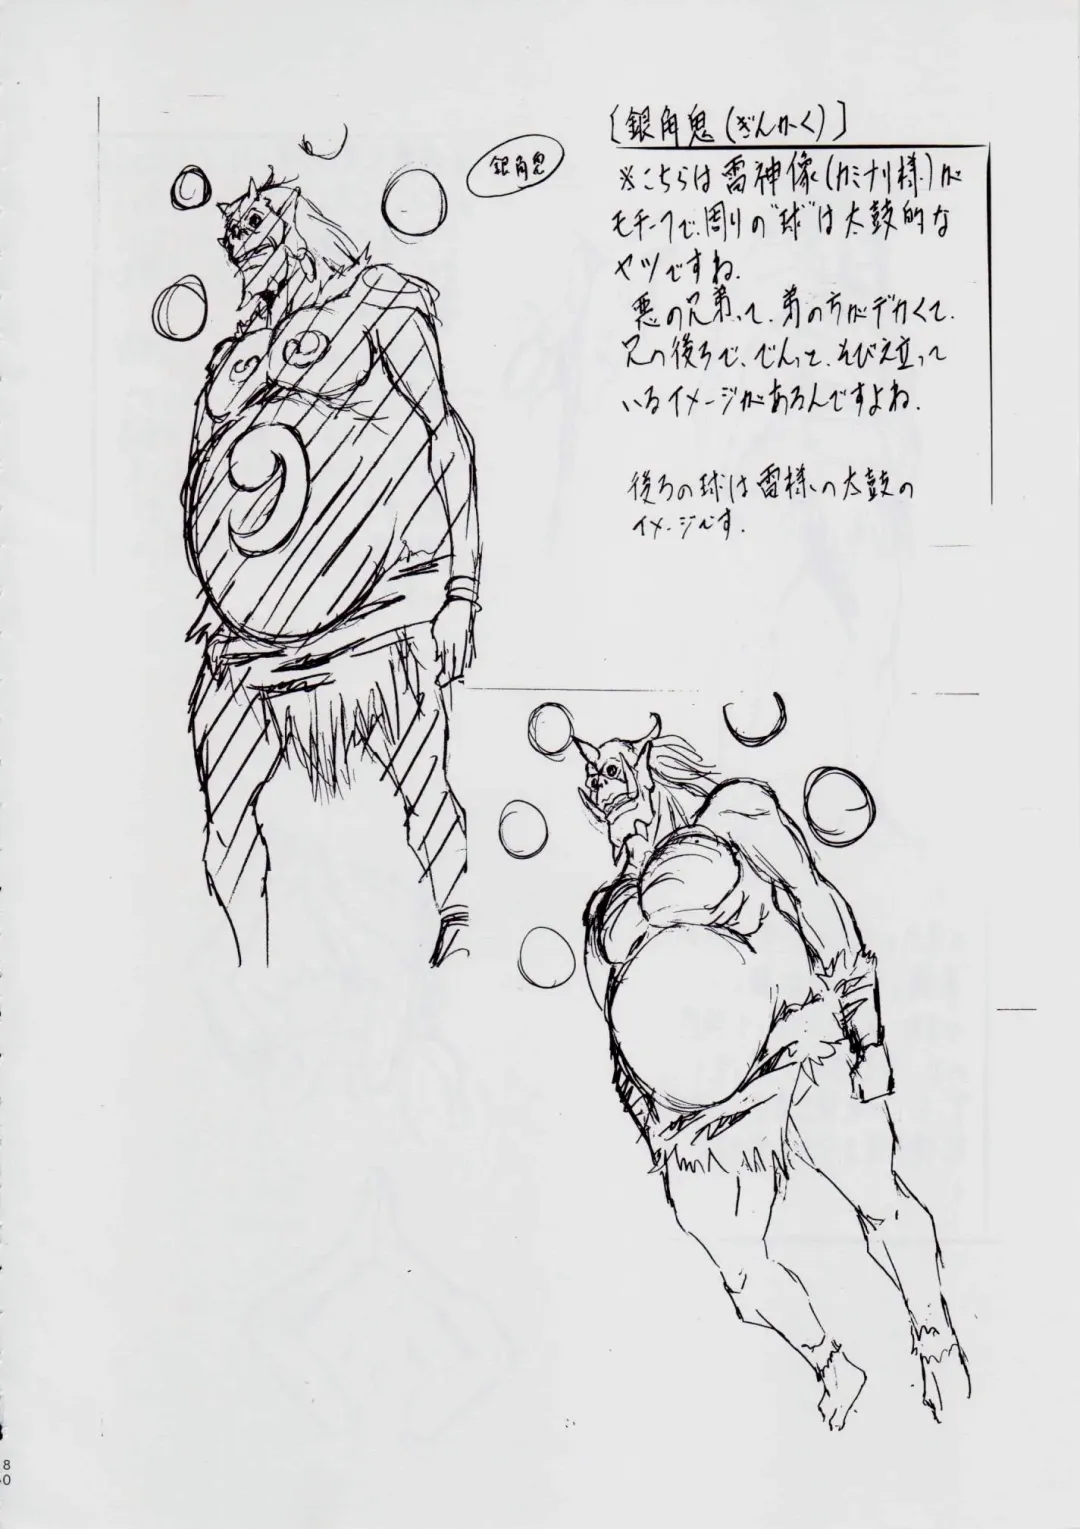 〔銀角鬼(ぎんかく)〕
銀角鬼
※こちらは雷神像(カミナリ様)が
モチーフで、周りの"球"は太鼓的な
ヤツですね.
悪の兄弟って、弟の方がデカくて.
兄の後ろで、でんっと、そびえ立って
いるイメージがあるんですよね.
後ろの球は雷様の太鼓の
イメージです.